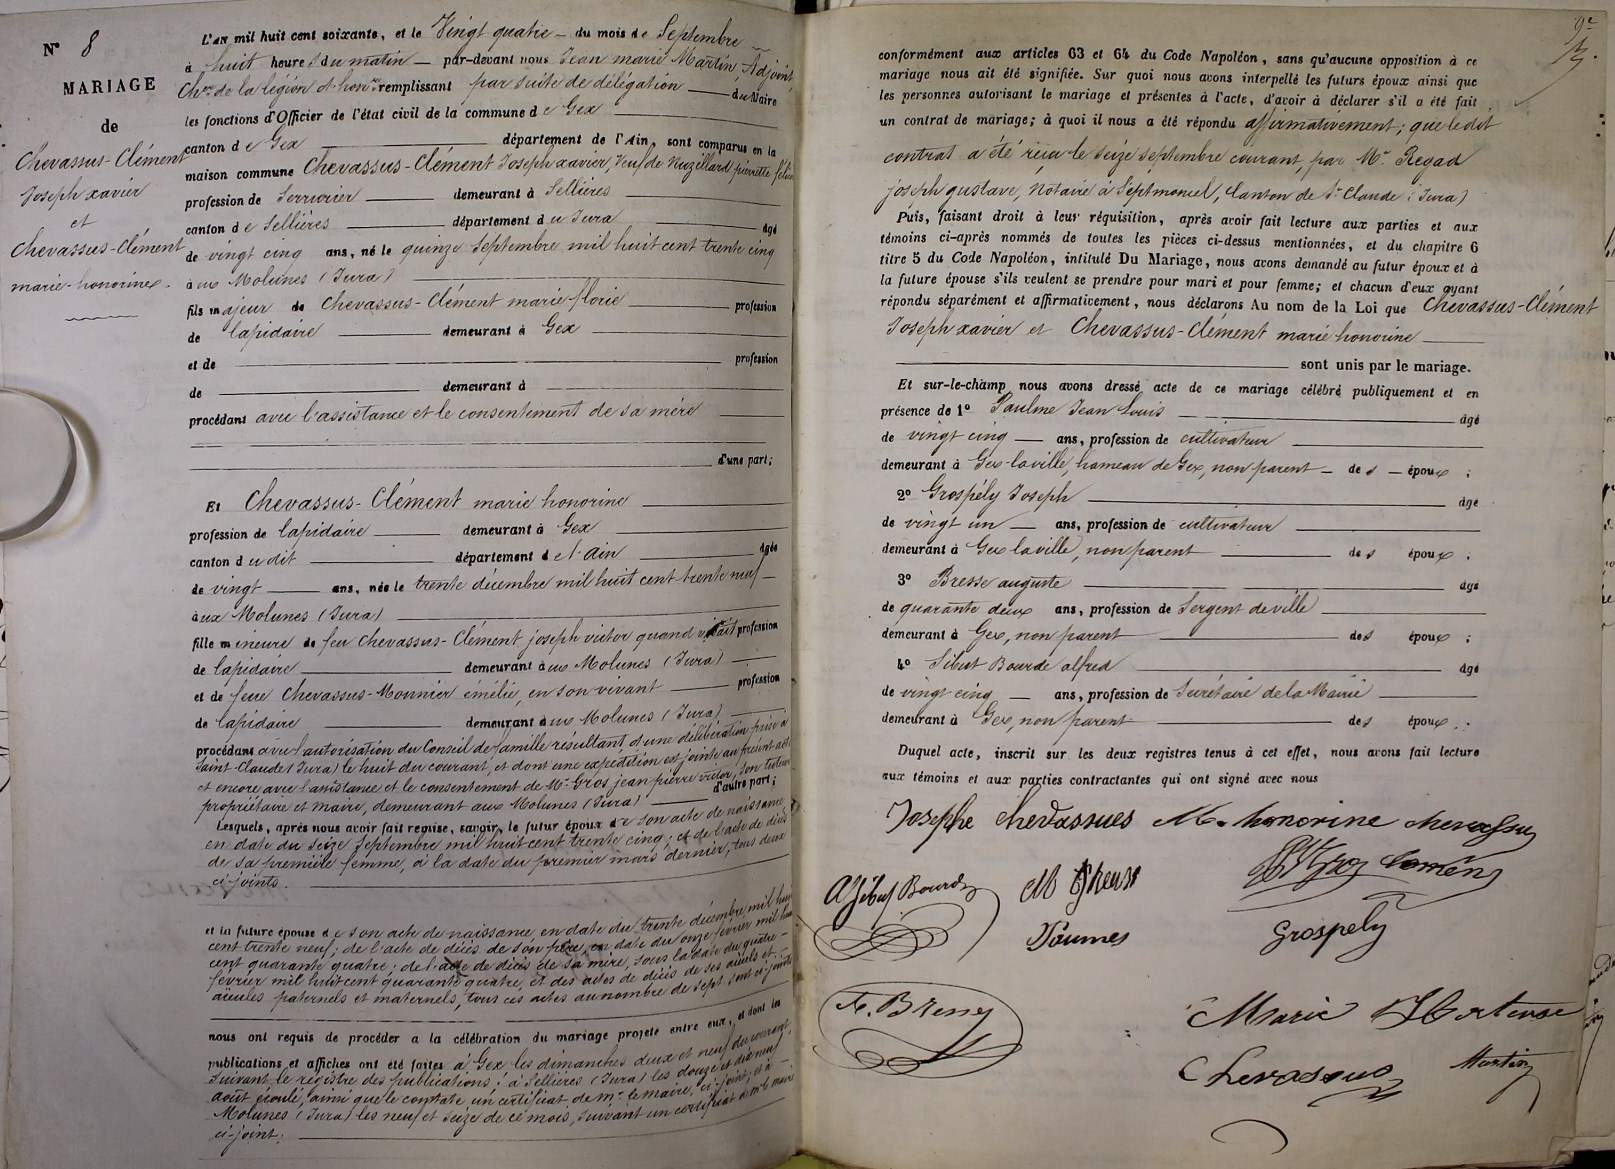 N° 8
MARIAGE
de
Chevassus-Clément
Joseph xavier
et
Chevassus-Clément
marie-honorine.
L'AN mil huit cent soixante, et le Vingt quatre du mois de Septembre
à huit heures du matin par-devant nous Jean marie Martin, Adjoint,
Cher de la légion d'honre remplissant par suite de délégation du Maire
les fonctions d'Officier de l'état civil de la commune de Gex
canton de Gex département de l'Ain, sont comparus en la
maison commune Chevassus-Clément Joseph xavier, Veuf de Vuzillard pierrette
profession de Serrurier demeurant à Sellières
canton de Sellières département du Jura âgé
de vingt cinq ans, né le quinze Septembre mil huit cent trente cinq
aux Molunes (Jura)
fils majeur de Chevassus-Clément marie florie profession
de lapidaire demeurant à Gex
et de profession
de demeurant à
procédant avec l'assistance et le consentement de sa mère
d'une part;
Et Chevassus-Clément marie honorine
profession de lapidaire demeurant à Gex
canton du dit département de l'Ain âgée
de vingt ans, née le trente décembre mil huit cent trente neuf
aux Molunes (Jura)
fille mineure de feu Chevassus-Clément joseph victor quand vivait profession
de lapidaire demeurant aux Molunes (Jura)
et de feue Chevassus-Monnier émélie, en son vivant profession
de lapidaire demeurant aux Molunes (Jura)
procédant avec l'autorisation du Conseil de famille résultant d'une délibération prise à
Saint-Claude (Jura) le huit du courant, et dont une expédition est jointe au présent acte
et encore avec l'assistance et le consentement de Mr Gros jean pierre victor, son tuteur
propriétaire et maire, demeurant aux Molunes (Jura) d'autre part;
Lesquels, après nous avoir fait remise, savoir, le futur époux de son acte de naissance
en date du Seize Septembre mil huit cent trente cinq; et de l'acte de décès
de sa première femme, à la date du premier mars dernier, tous deux
ci-joints.
et la future épouse de son acte de naissance, en date du trente décembre mil huit
cent trente neuf; de l'acte de décès de son père, en date du onze février mil huit
cent quarante quatre; de l'acte de décès de sa mère, sous la date du quatre
février mil huit cent quarante quatre, et des actes de décès de ses aïeuls et
aïeules paternels et maternels, tous ces actes au nombre de sept, sont ci-joints
nous ont requis de procéder à la célébration du mariage projeté entre eux, et dont les
publications et affiches ont été faites à Gex les dimanches deux et neuf du courant,
suivant le registre des publications; à Sellières (Jura) les douze et dix neuf
août écoulé, ainsi que le constate un certificat de mr le maire, ci-joint; et à
Molunes (Jura) les neuf et seize de ce mois, suivant un certificat de mr le maire
ci-joint.
9e
conformément aux articles 63 et 64 du Code Napoléon, sans qu'aucune opposition à ce
mariage nous ait été signifiée. Sur quoi nous avons interpellé les futurs époux ainsi que
les personnes autorisant le mariage et présentes à l'acte, d'avoir à déclarer s'il a été fait
un contrat de mariage; à quoi il nous a été répondu affirmativement; que le dit
contrat a été reçu le seize septembre courant, par Me Regad
joseph gustave, Notaire à Septmoncel, Canton de St Claude (Jura)
Puis, faisant droit à leur réquisition, après avoir fait lecture aux parties et aux
témoins ci-après nommés de toutes les pièces ci-dessus mentionnées, et du chapitre 6
titre 5 du Code Napoléon, intitulé Du Mariage, nous avons demandé au futur époux et à
la future épouse s'ils veulent se prendre pour mari et pour femme; et chacun d'eux ayant
répondu séparément et affirmativement, nous déclarons Au nom de la Loi que Chevassus-Clément
Joseph xavier et Chevassus-Clément marie honorine
sont unis par le mariage.
Et sur-le-champ nous avons dressé acte de ce mariage célébré publiquement et en
présence de 1° Paulme Jean Louis âgé
de vingt cinq ans, profession de cultivateur
demeurant à Gex-la-ville, hameau de Gex, non parent des époux;
2° Grospély Joseph âgé
de vingt un ans, profession de cultivateur
demeurant à Gex la ville, non parent des époux;
3° Bresse auguste âgé
de quarante deux ans, profession de Sergent de ville
demeurant à Gex, non parent des époux;
4° Sibut Bourde alfred âgé
de vingt cinq ans, profession de Secrétaire de la Mairie
demeurant à Gex, non parent des époux.
Duquel acte, inscrit sur les deux registres tenus à cet effet, nous avons fait lecture
aux témoins et aux parties contractantes qui ont signé avec nous
Josephe chevassues M. honorine chevassu
A Sibut Bourde
Paumes Grospely
A. Bresse
Marie Hortense
Chevassus Martin